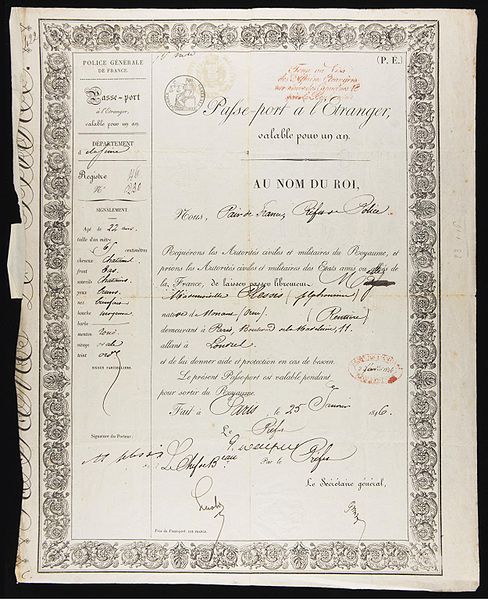 POLICE GÉNÉRALE
DE FRANCE.
Passe-port
à l'Étranger,
valable pour un an.
DÉPARTEMENT
Registre
N°
SIGNALEMENT.
Agé de 22 ans.
taille d'un mètre
65 centimètres
cheveux Chatains
front bas
sourcils Chatains
yeux bruns
nez
bouche moyenne
barbe
menton rond
visage ovale
teint
SIGNES PARTICULIERS.
Signature du Porteur
(P. E.)
Passe-port à l'Étranger,
valable pour un an.
AU NOM DU ROI,
Nous, Pair de France, Préfet de Police
Requérons les Autorités civiles et militaires du Royaume, et
prions les Autorités civiles et militaires des États amis ou alliés de
la France, de laisser passer librement
Mademoiselle Plessis (Alphonsine)
native de Nonant (Orne) (Rentière)
demeurant à Paris, Boulevard de la Madeleine, 11.
allant à Londres
et de lui donner aide et protection en cas de besoin.
Le présent Passe-port est valable pendant
pour sortir du Royaume.
Fait à Paris le 25 Janvier 1846.
Le Préfet
Par le Préfet
Le Chef de Bureau
Le Secrétaire général,
Prix du Passeport: DIX FRANCS.